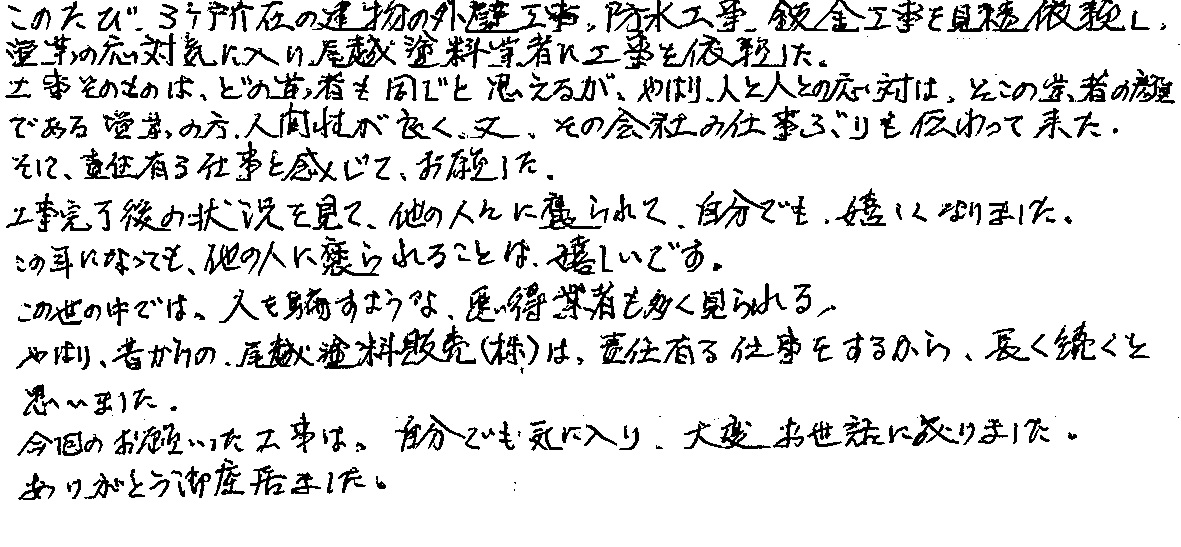 このたび、3ヶ所所在の建物の外壁工事、防水工事、鈑金工事を見積依頼し、
営業の応対気に入り、尾越塗料業者に工事を依頼した。
工事そのものは、どの業者も同じと思えるが、やはり、人と人との応対は、そこの業者の顔
である営業の方、人間性が良く、又、その会社の仕事ぶりも伝わって来た。
そして、責任有る仕事を感んじて、お願した。
工事完了後の状況を見て、他の人々に褒られて、自分でも、嬉しくなりました。
この年になっても、他の人に褒られることは、嬉しいです。
この世の中では、人を騙すような、悪い得業者も多く見られる、
やはり、昔からの、尾越塗料販売(株)は、責任有る仕事をするから、長く続くと
思いました。
今回のお願いした工事は、自分でも気に入り、大変お世話に成りました。
ありがとう御座居ました。